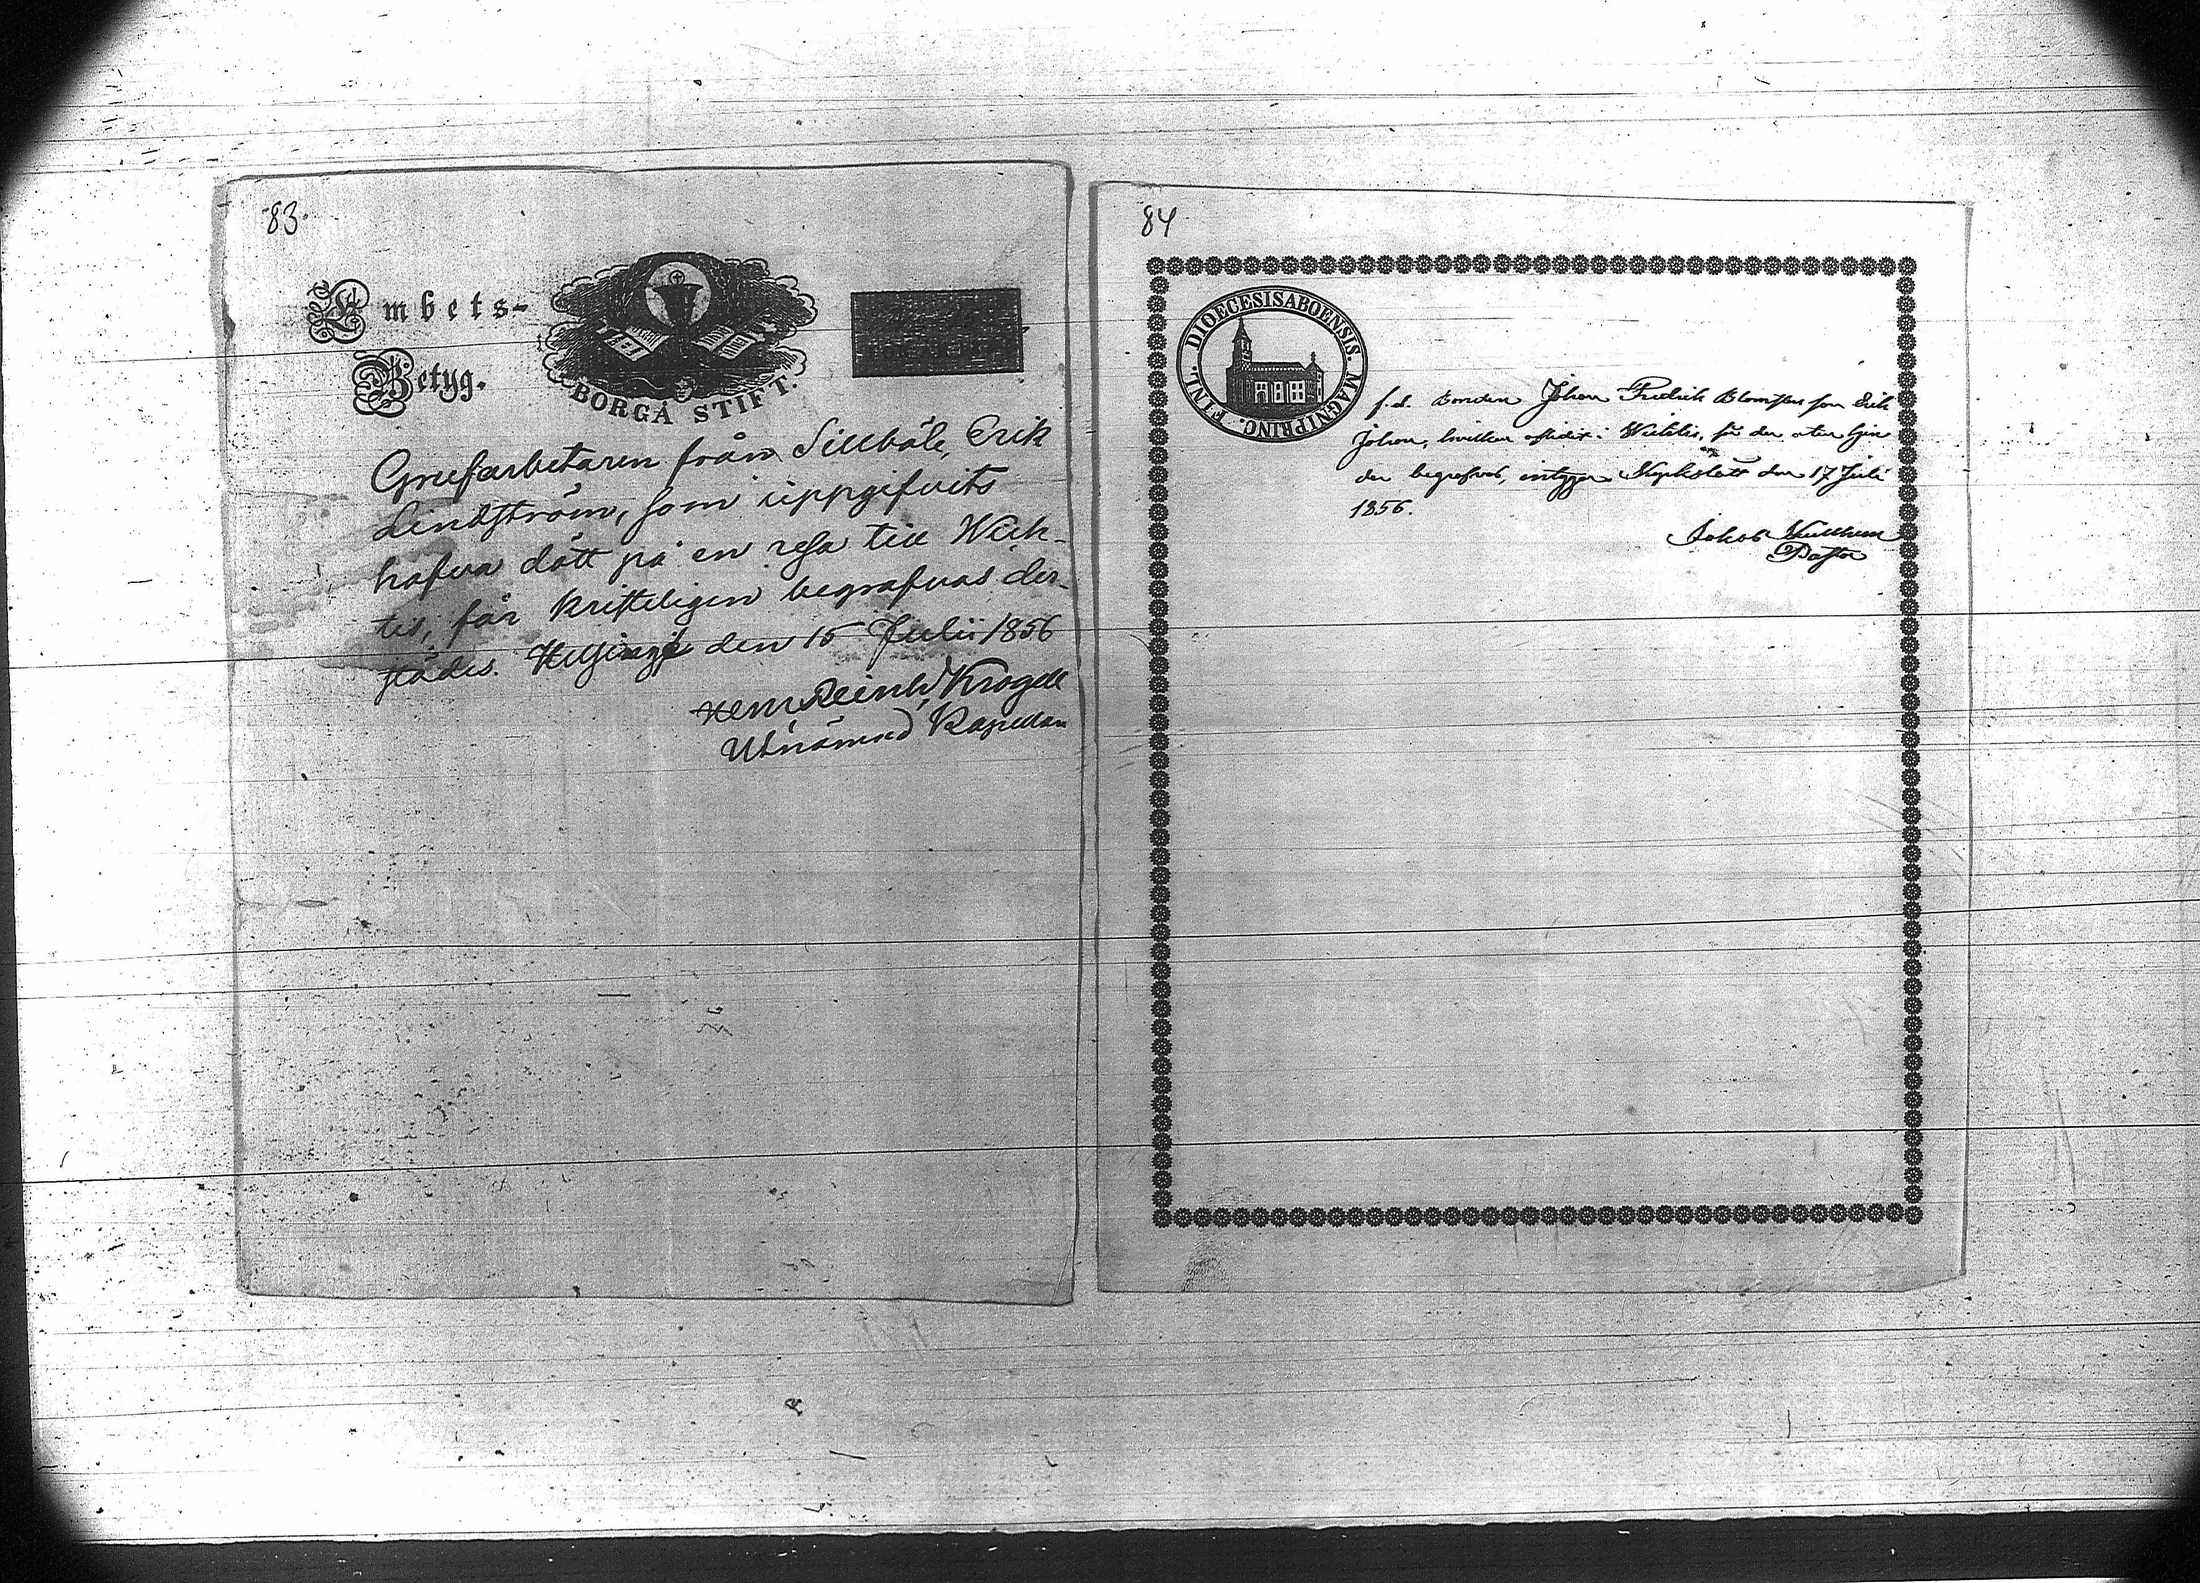 83.
Embets-
Betyg.
BORGÅ STIFT.
Grufarbetaren från Sillböle, Erik
Lindström, som uppgifvits
hafva dött på en resa till Wich-
tis, får kristeligen begrafvas der-
städes. Helsinge den 15 Julii 1856
Reinh. Krogell
Utnämnd Kapellan
84
DIOECESIS ABOENSIS. MAGNI PRINC. FINL.
f.d. Bonden Johan Fredrik Blomqvist son Erik
Johan, hvilken aflidit i Wichtis, får der
begrafvas, intygar Kyrkslätt den 17 Juli
1856.
Jakob
Pastor